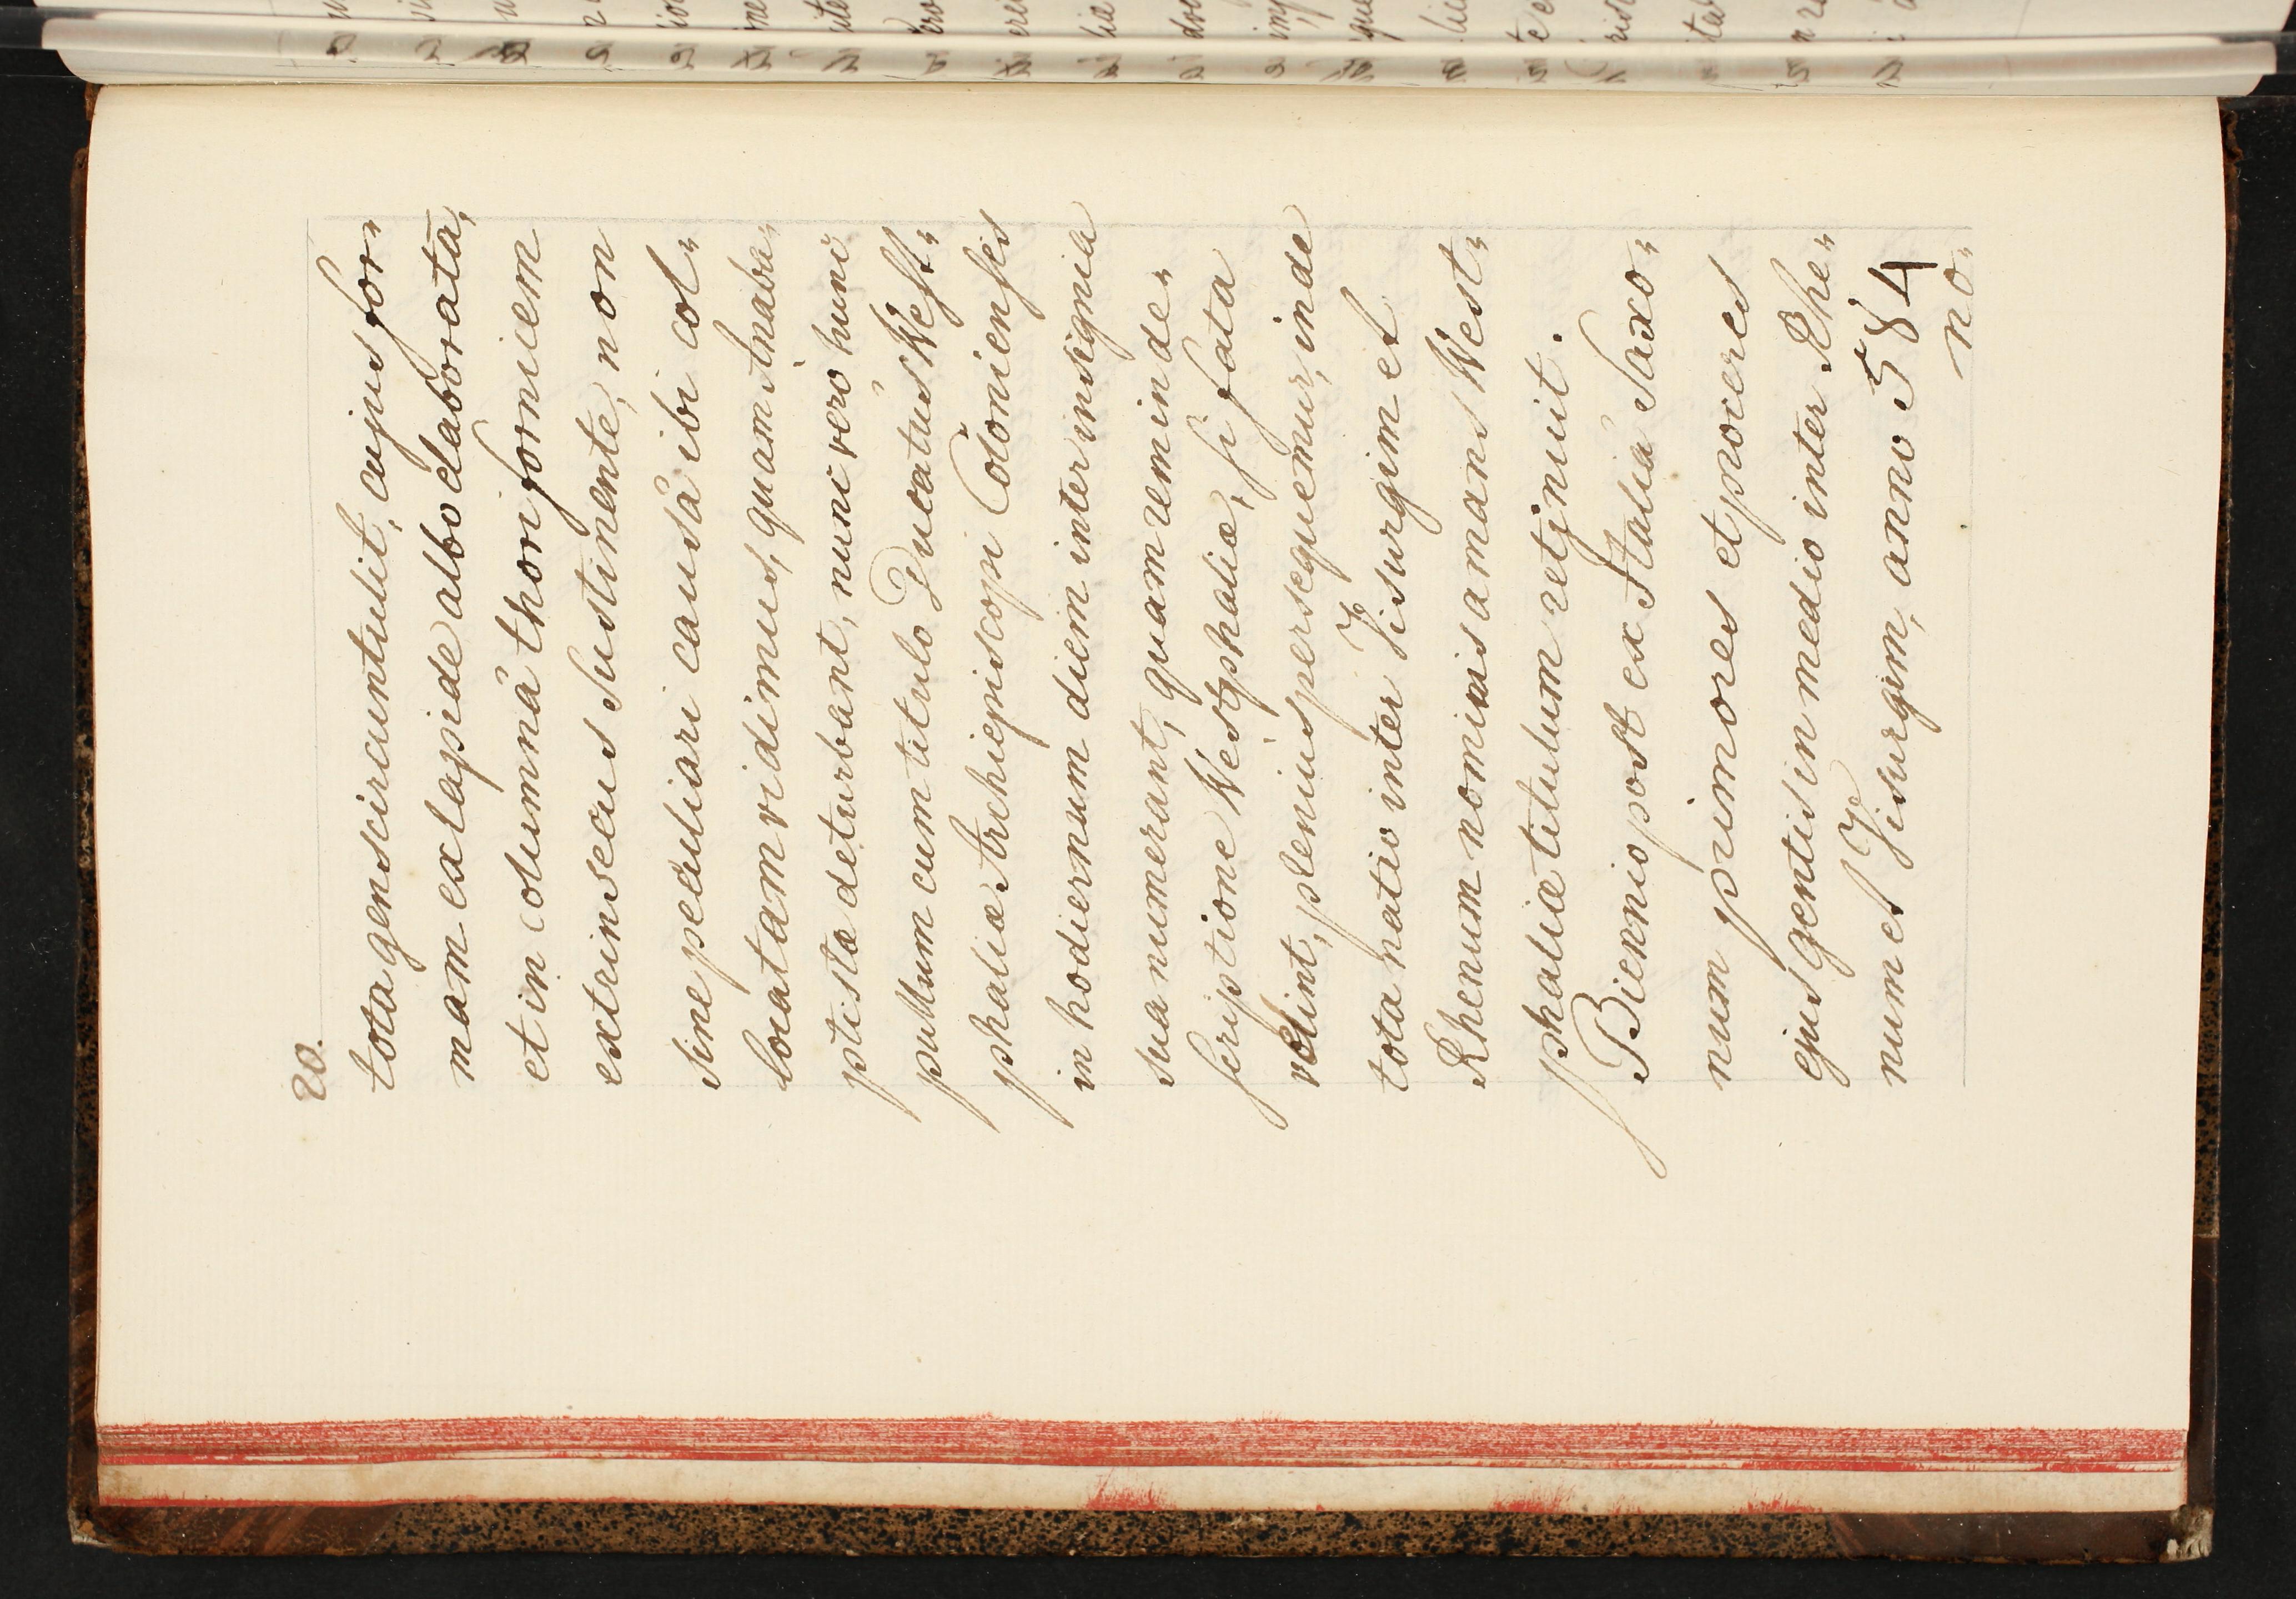 20.
tota gens circumtulit, cujus for„
mam ex lapide albo elaboratā,
et in columnâ thori fornicem
extrinsecus sustinente, non
sine peculiari causâ ibi col„
locatam vidimus, quam Anaba„
ptistæ deturbant, nunc vero hunc
pullum cum titulo Ducatus West„
phaliæ Archiepiscopi Colonienses
in hodiernum diem inter insignia
sua numerant, quam rem in de„
scriptione Westphaliæ, si fata
velint, plenius persequemur, inde
tota natio inter Visurgim et
Rhenum nominis amans West„
phaliæ titulum retinuit.
Biennio post ex Italiâ Saxo„
num primores et proceres
ejus gentis in medio inter Rhe„
num et Visurgim, anno 584
no„